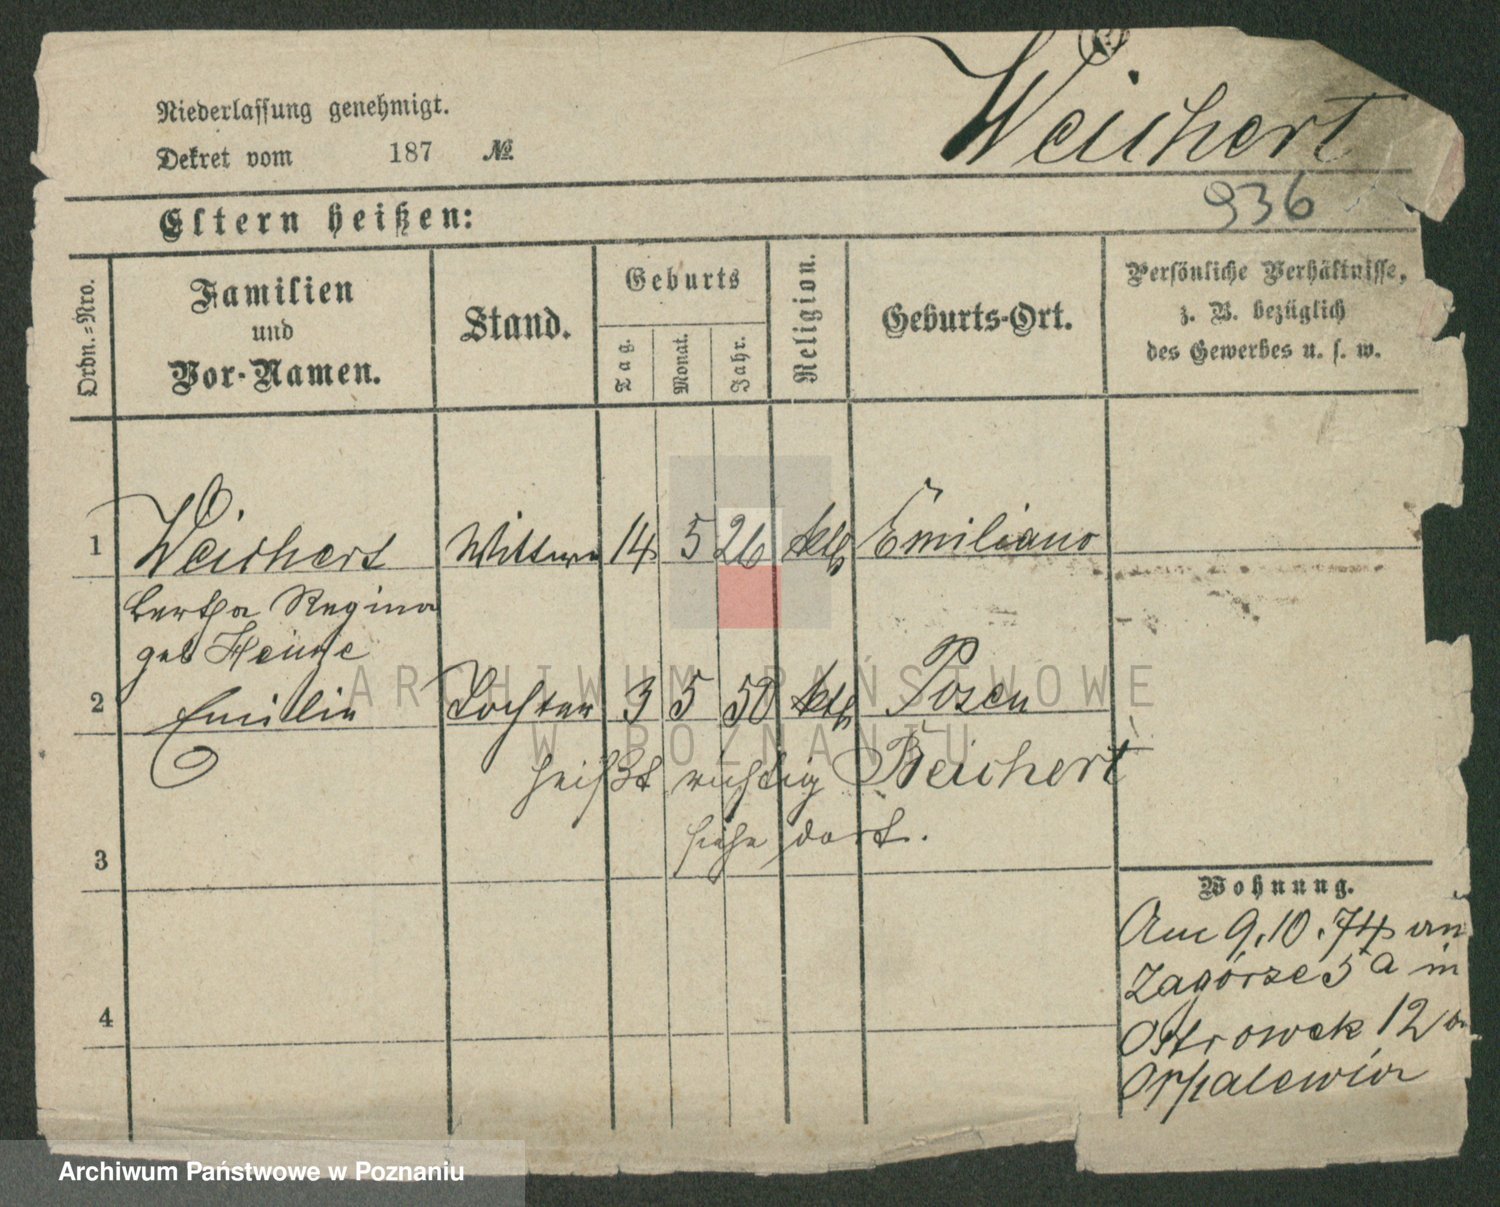 Weichert
Niederlassung genehmigt.
Dekret vom 187 №
936
Eltern heißen:
Ordn.=Nro.
Familien
und
Vor-Namen.
Stand.
Geburts
Tag.
Monat.
Jahr.
Religion.
Geburts-Ort.
Persönliche Verhältnisse,
z. B. bezüglich
des Gewerbes u. s. w.
1 Weichert Wittwe 14 5 26 kth Emiliano
Bertha Regina
geb
2 Emilie Tochter 3 5 50 kth Posen
heißt richtig Beichert
siehe dort.
3
Wohnung.
Am 9.10.74 an
Zagórze 5a in
4
Ostrowek 12
ARCHIWUM PAŃSTWOWE
W POZNANIU
Archiwum Państwowe w Poznaniu